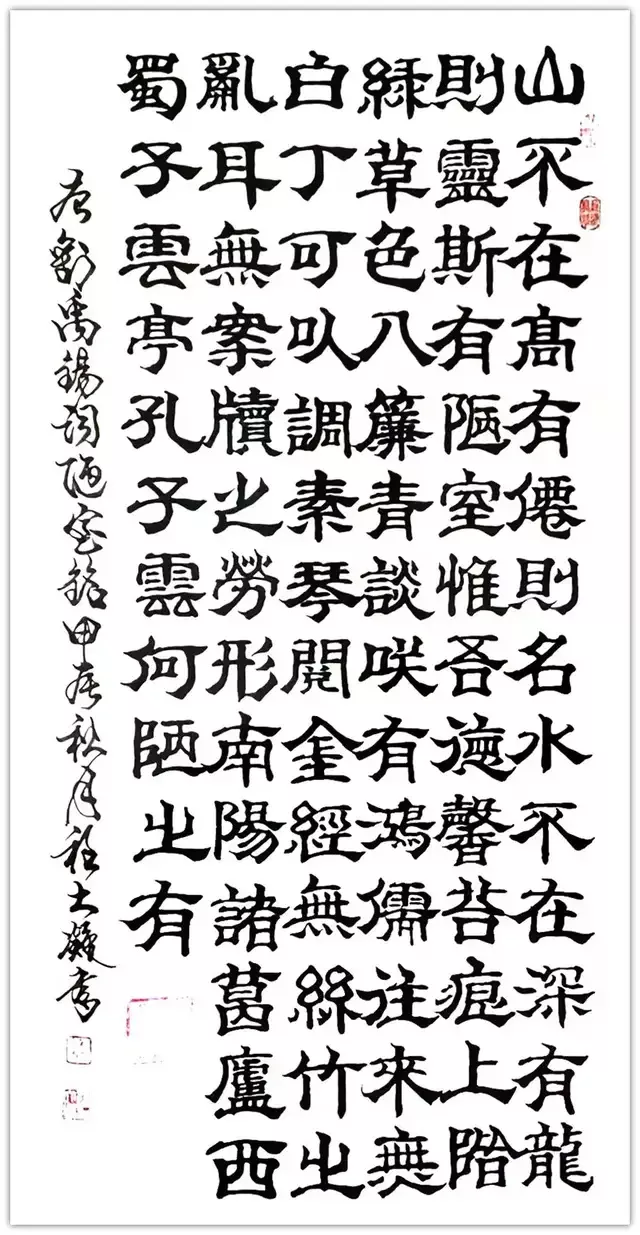 山不在髙有僊則名水不在深有龍
則靈斯有陋室惟吾德馨苔痕上階
綠草色入簾青談咲有鴻儒往來無
白丁可以調素琴閱金經無絲竹之
亂耳無案牘之勞形南陽諸葛廬西
蜀子雲亭孔子雲何陋之有
劉禹錫詞陋室銘甲辰秋月書